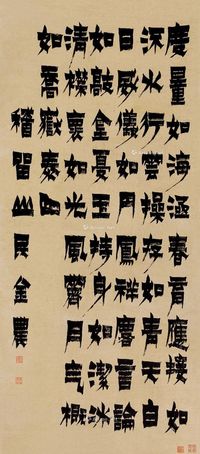 度量如海涵春育應接如
流水行雲操存如青天白
日威儀如丹鳳祥麐言論
如敲金戛玉持身如潔冰
清襟懷如光風霽月气概
如喬嶽泰山
稽留山民金農